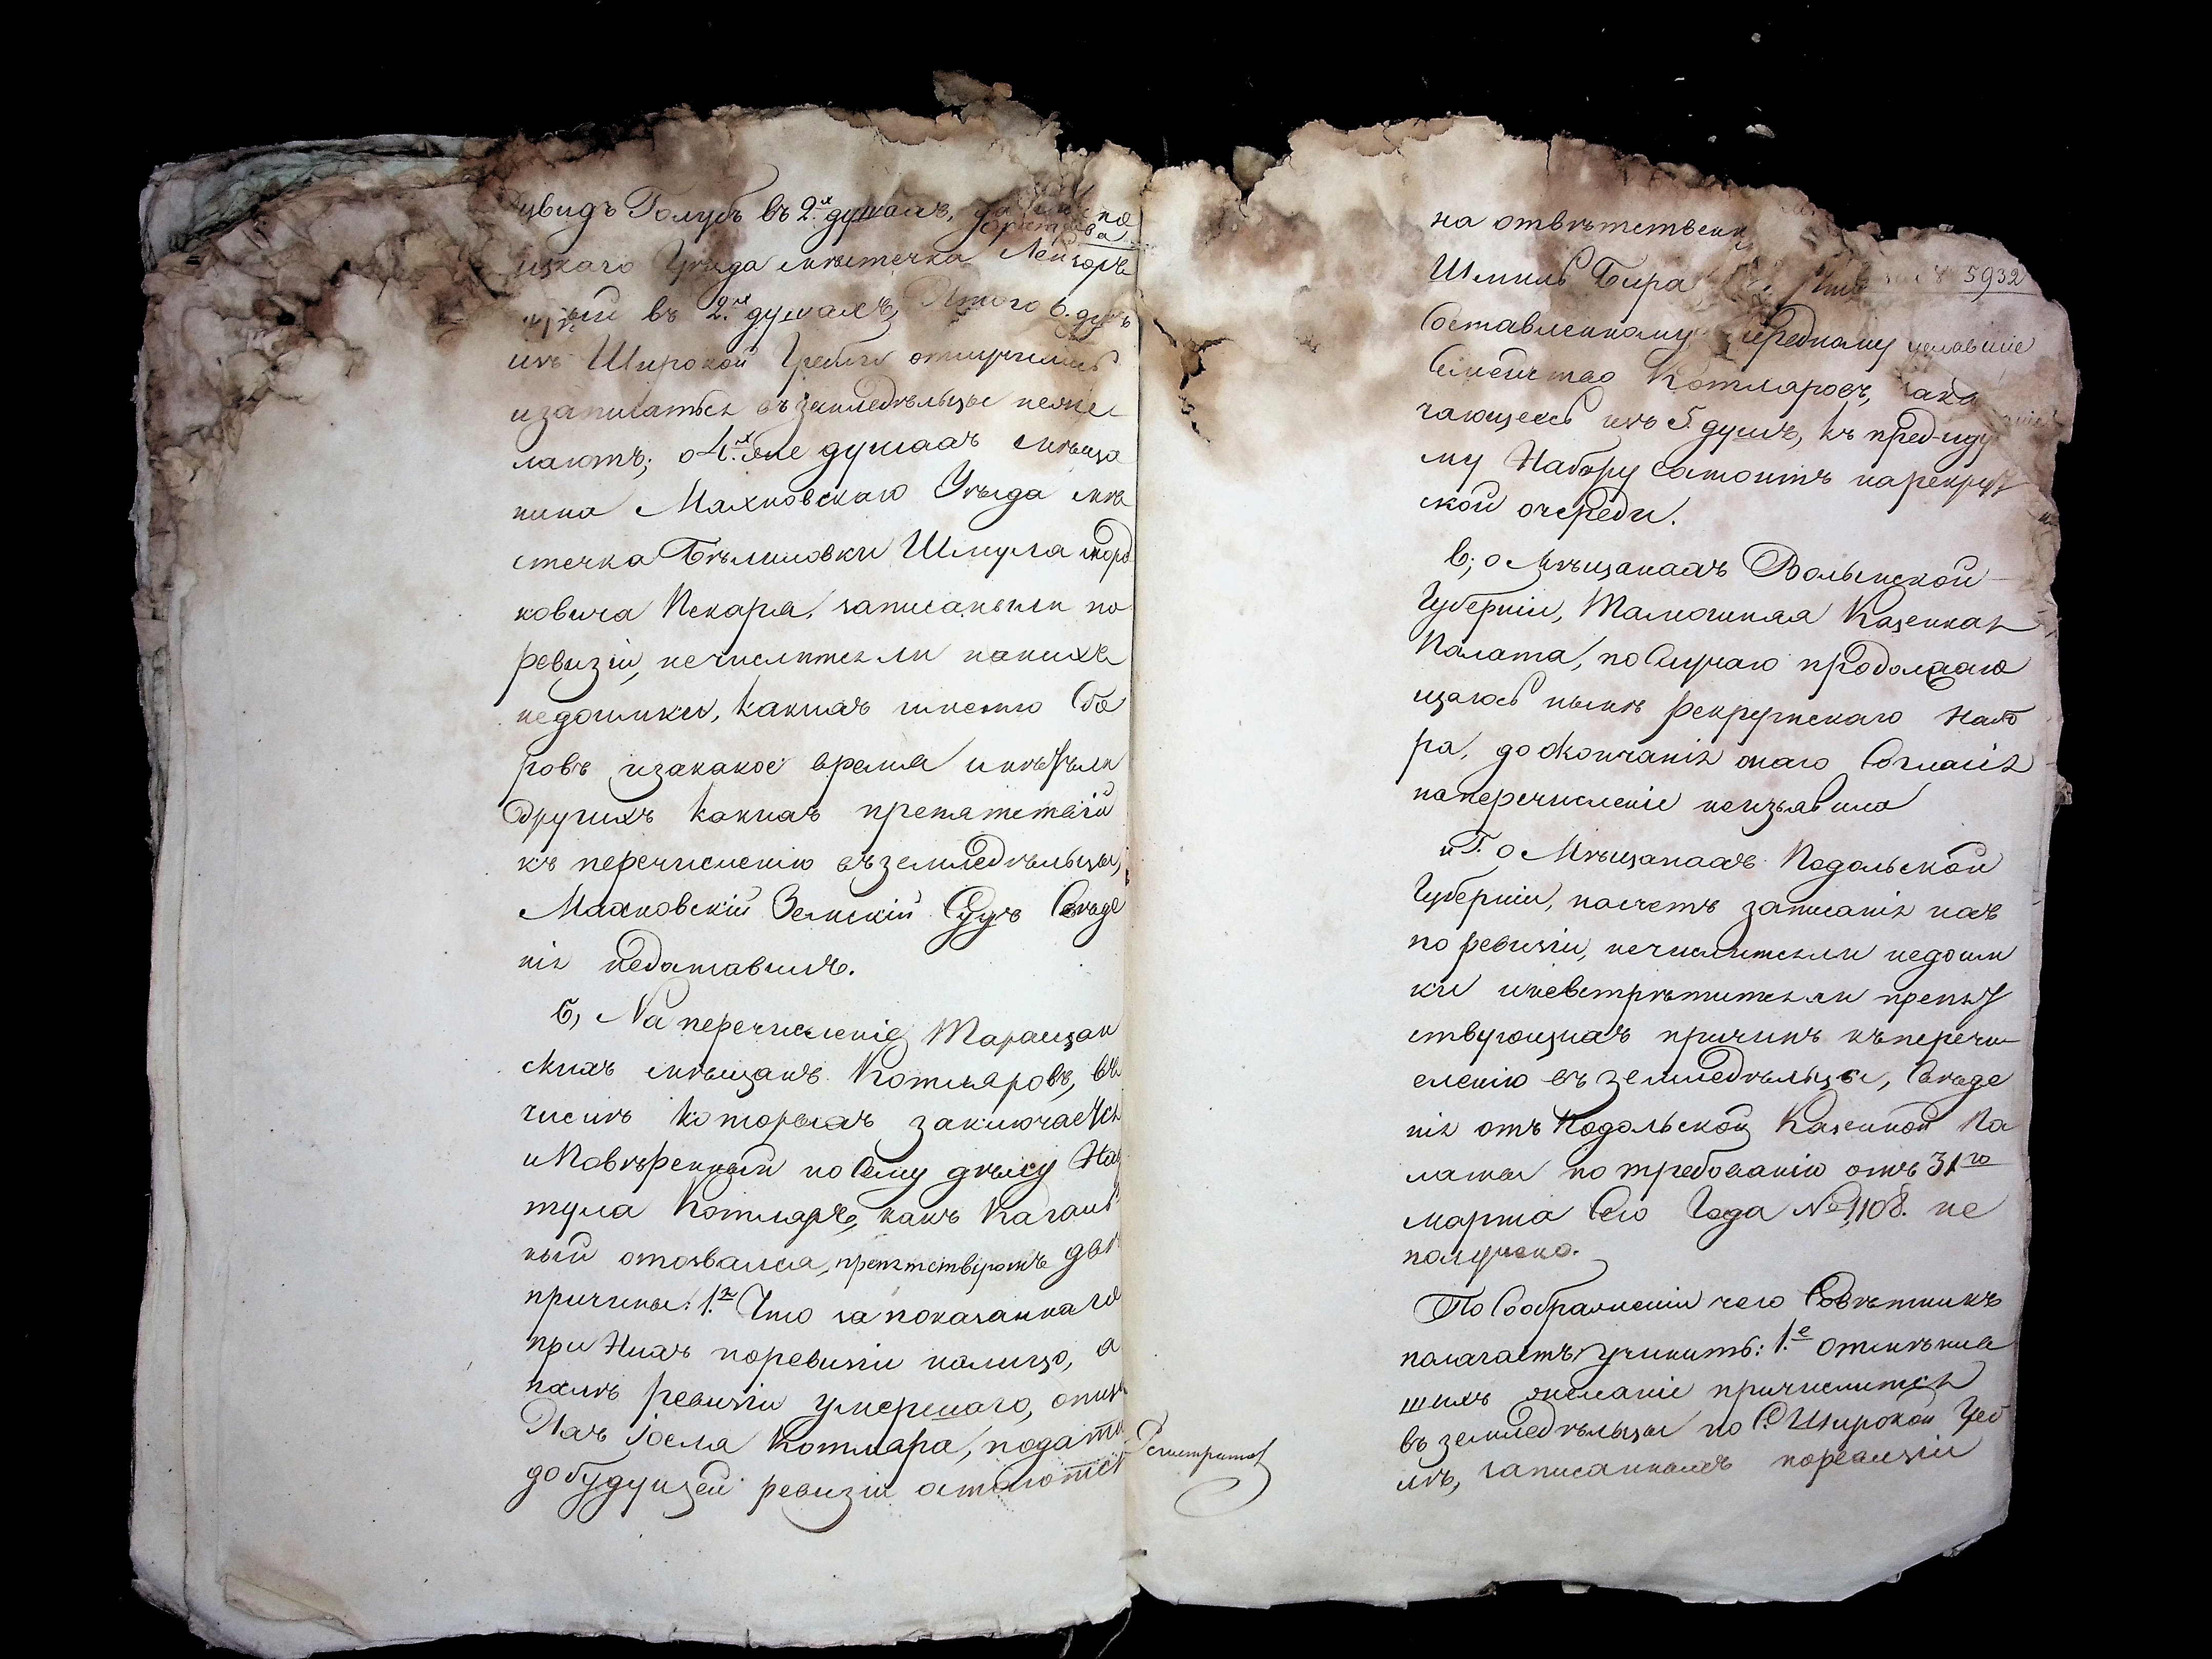 Дувидъ Голубъ въ 2.хъ душахъ,
уезда местечка Лейзоръ
въ 2.хъ душахъ, Итого 6. душъ
изъ Широкой Гребли отлучились
и записатьсь въ земледѣльцы неже
лаютъ; о 4.хъ же душахъ мѣща
нина Махновскаго Уѣзда мѣ
стечка Бѣлиловки Шмула Морд
ковича Пекаря, записаныли по
ревизіи, нечислитсяли накихъ
недоимки, какихъ имѣнно Сбо
ровъ изакакое время инѣтъли
другихъ какихъ препятствій
къ перечисленію въ земледѣльцы,
Махновскій Земскій Судъ Свѣде
нія недоставилъ.
Б, На перечисленіе Таращан
скихъ мѣщанъ Котляровъ, въ
числѣ которыхъ заключается
и Повѣренный по Сему дѣлу На
тула Котляръ, какъ Каганъ
ный отозвался, препятствуютъ двѣ
причины: 1.я Что за показаннаго
при Нихъ поревизіи налицо, а
послѣ ревизіи умершаго, отца
Ихъ Іоеля Котляра, подати
добудущей ревизіи остаются
Регистраторъ
на отвѣтственн
Шмиль Бира
5932
Составленному очередному
Семейство Котляровъ, заклю
чающееся изъ 5. душъ, къ пред-иду
му Набору состоитъ нарекрут
ской очереди.
в; о Мѣщанахъ Волынской
Губерніи, Тамошняя Казенная
Палата, по Случаю продолжаю
щагось нынѣ рекрутскаго набо
ра, до окончанія онаго Согласія
наперечисленіе неизъявила
и Г. о Мѣщанахъ Подольской
Губерніи, насчетъ записанія ихъ
по ревизіи, нечислитсяли недоим
ки иневстрѣтитсяли препят
ствующихъ причинъ къ перечи
сленію въ земледѣльцы, Свѣде
нія отъ Подольской Казенной Па
латы по требованію отъ 31го
марта Сего Года № 1108. не
получено.
По Соображеніи чего Совѣтникъ
полагаетъ учинить: 1.е отмѣнив
шихъ желаніе причислится
въ земледѣльцы по С. Широкой Греб
лѣ, записанныхъ поревизіи